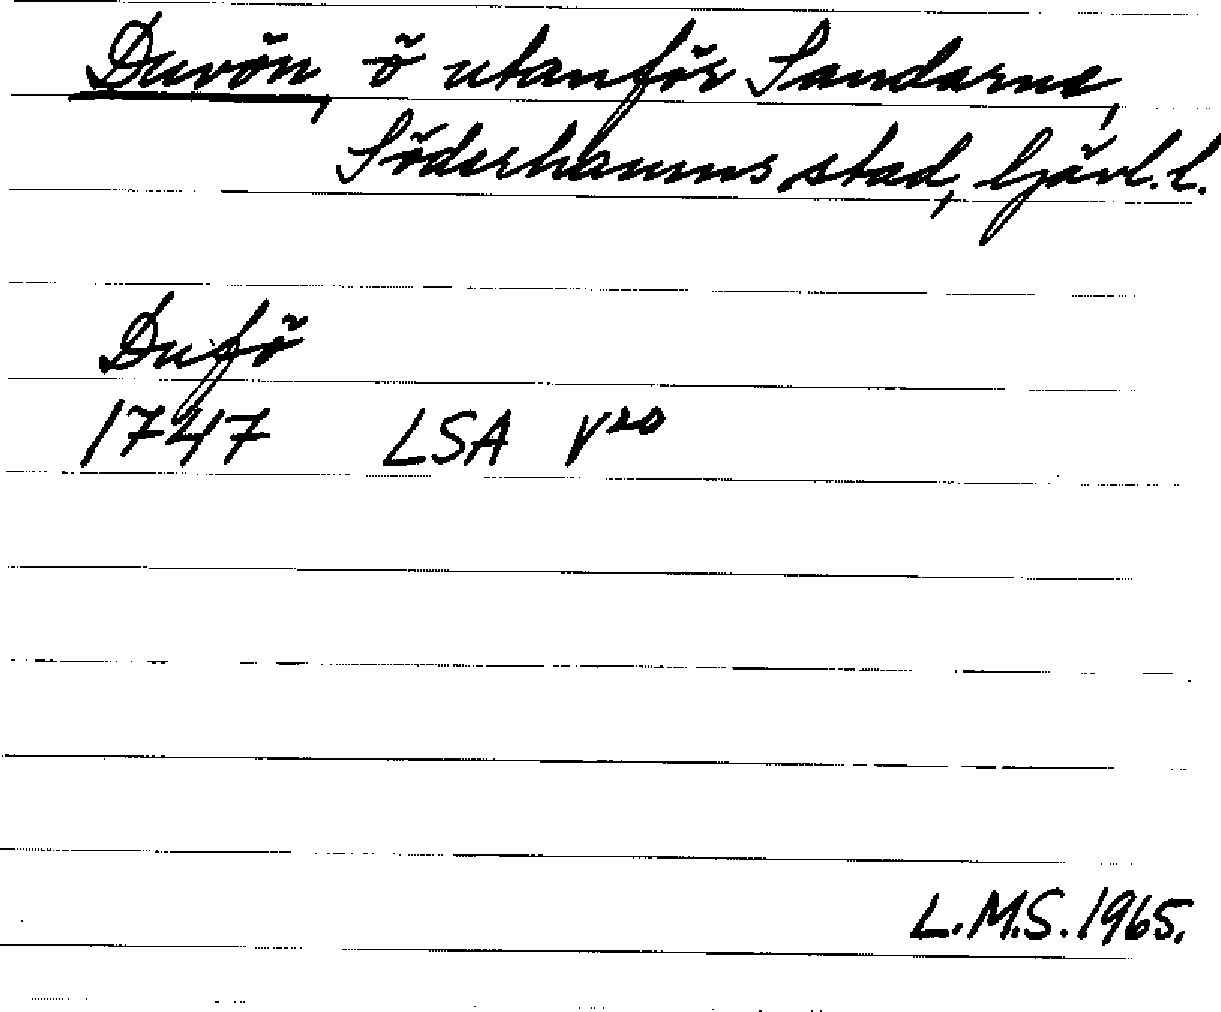 Duvön, ö utanför Sandarne,
Söderhamns stad, Gävl.l.
Dufö
1747 LSA V²⁰
L.M.S. 1965.